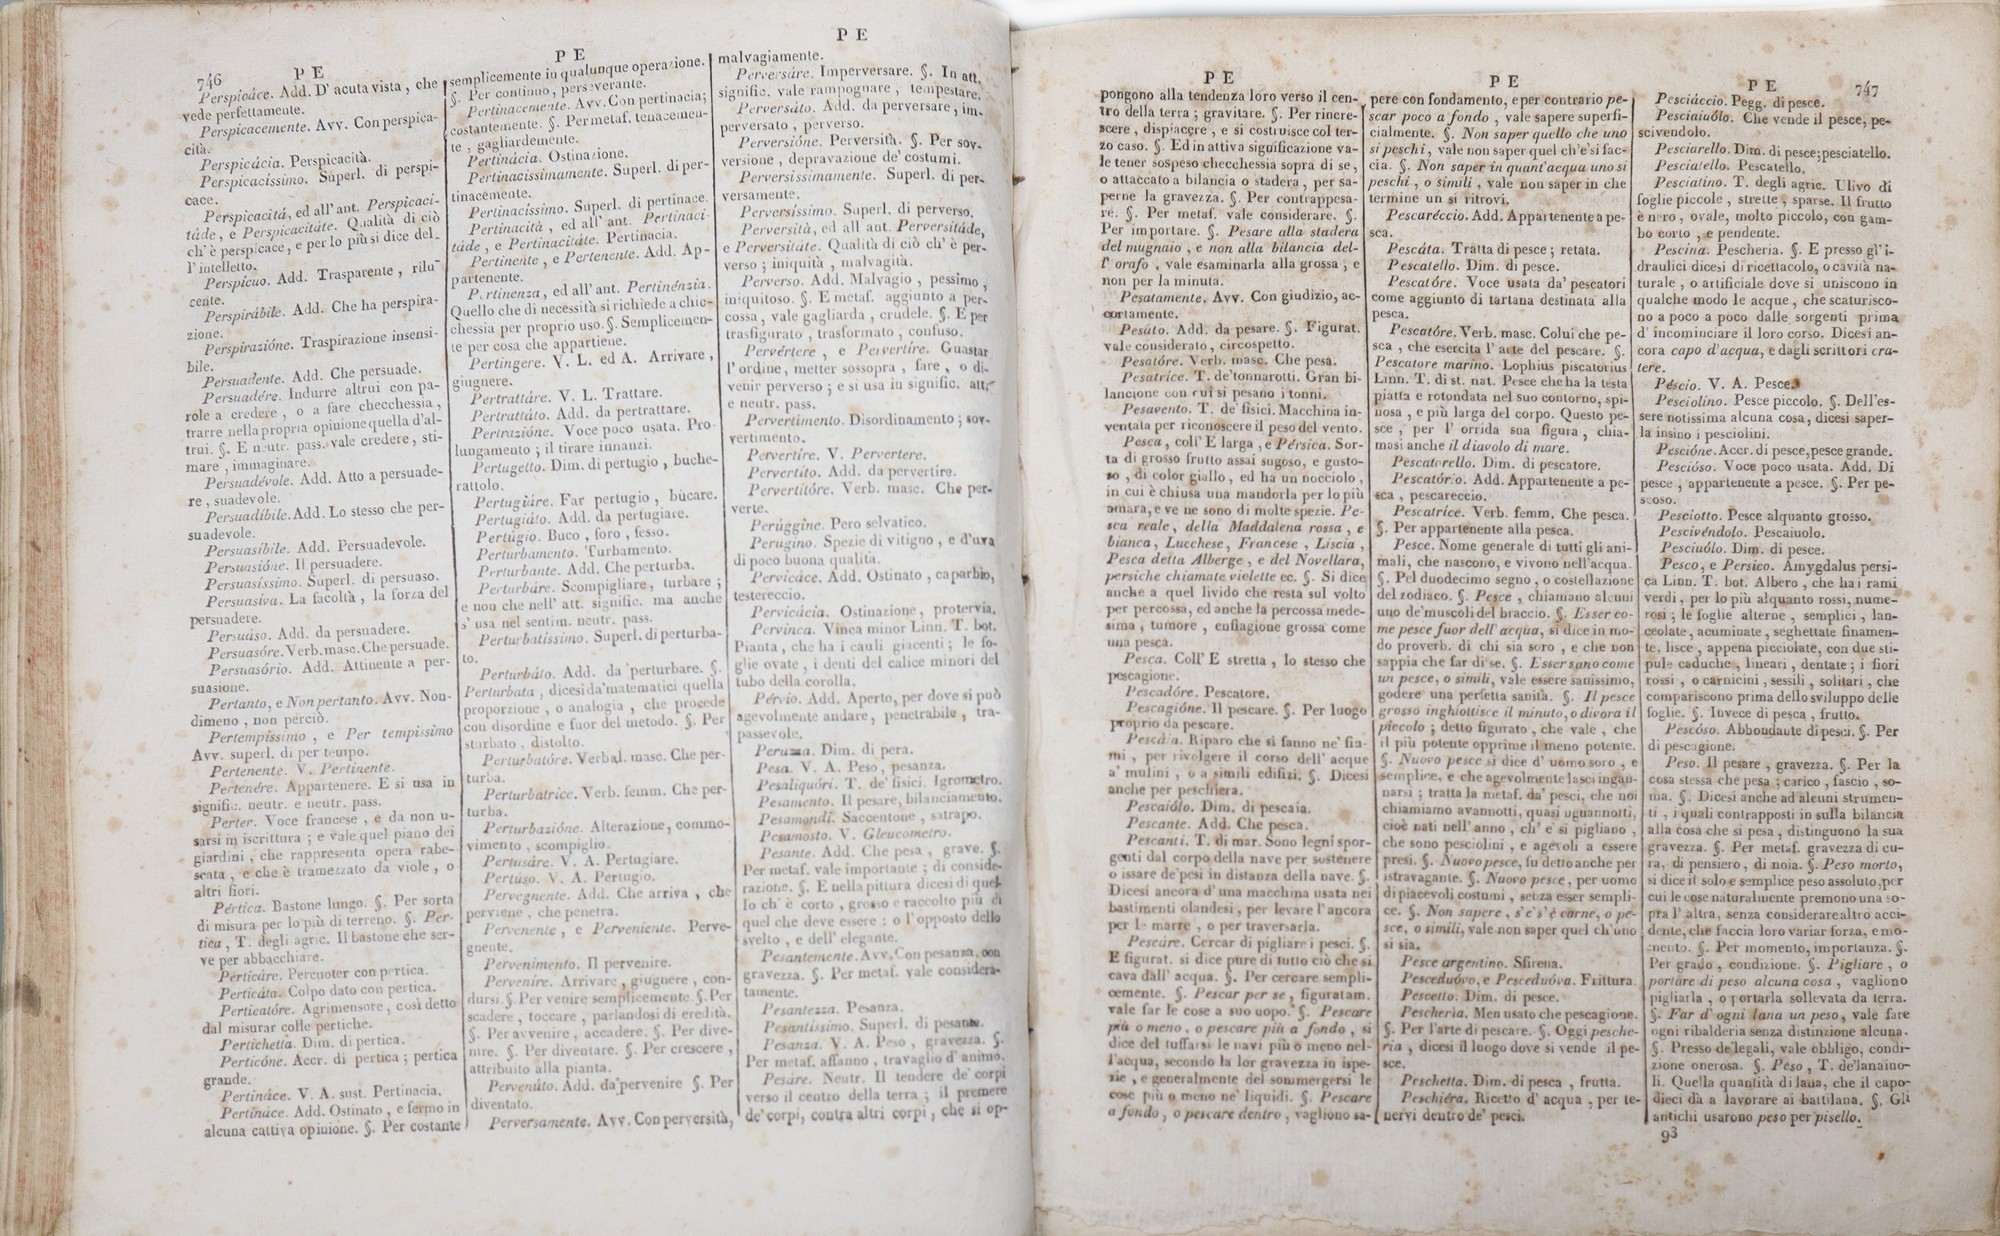 746
P E
Perspicáce. Add. D' acuta vista , che
vede perfettamente.
Perspicacemente. Avv. Con perspica-
cità.
Perspicácia. Perspicacità.
Perspicacíssimo. Superl. di perspi-
cace.
Perspicacitá, ed all' ant. Perspicaci-
táde, e Perspicacitáte. Qualità di ciò
ch' è perspicace, e per lo più si dice del-
l' intelletto.
Perspícuo. Add. Trasparente , rilu-
cente.
Perspirábile. Add. Che ha perspira-
zione.
Perspirazióne. Traspirazione insensi-
bile.
Persuadente. Add. Che persuade.
Persuadére. Indurre altrui con pa-
role a credere , o a fare checchessia ,
trarre nella propria opinione quella d'al-
trui. §. E neutr. pass. vale credere, sti-
mare , immaginare.
Persuadévole. Add. Atto a persuade-
re , suadevole.
Persuadibile. Add. Lo stesso che per-
suadevole.
Persuasíbile. Add. Persuadevole.
Persuasióne. Il persuadere.
Persuasíssimo. Superl. di persuaso.
Persuasiva. La facoltà , la forza del
persuadere.
Persuáso. Add. da persuadere.
Persuasóre. Verb. masc. Che persuade.
Persuasório. Add. Attinente a per-
suasione.
Pertanto, e Non pertanto. Avv. Non-
dimeno , non perciò.
Pertempíssimo , e Per tempissimo
Avv. superl. di per tempo.
Pertenente. V. Pertinente.
Pertenére. Appartenere. E si usa in
signific. neutr. e neutr. pass.
Perter. Voce francese , e da non u-
sarsi in iscrittura ; e vale quel piano dei
giardini , che rappresenta opera rabe-
scata , e che è tramezzato da viole , o
altri fiori.
Pértica. Bastone lungo. §. Per sorta
di misura per lo più di terreno. §. Per-
tica , T. degli agric. Il bastone che ser-
ve per abbacchiare.
Perticáre. Percuoter con pertica.
Perticáta. Colpo dato con pertica.
Perticatóre. Agrimensore, così detto
dal misurar colle pertiche.
Pertichetta. Dim. di pertica.
Perticóne. Accr. di pertica ; pertica
grande.
Pertináce. V. A. sust. Pertinacia.
Pertináce. Add. Ostinato , e fermo in
alcuna cattiva opinione. §. Per costante
P E
semplicemente in qualunque operazione.
§. Per continuo, perseverante.
Pertinacemente. Avv. Con pertinacia;
costantemente. §. Per metaf. tenacemen-
te , gagliardemente.
Pertinácia. Ostinazione.
Pertinacissimamente. Superl. di per-
tinacemente.
Pertinacíssimo. Superl. di pertinace.
Pertinacità , ed all' ant. Pertinaci-
táde, e Pertinacitáte. Pertinacia.
Pertinente , e Pertenente. Add. Ap-
partenente.
Pertinenza, ed all' ant. Pertinénzia.
Quello che di necessità si richiede a chic-
chessia per proprio uso. §. Semplicemen-
te per cosa che appartiene.
Pertingere. V. L. ed A. Arrivare ,
giugnere.
Pertrattáre. V. L. Trattare.
Pertrattáto. Add. da pertrattare.
Pertrazióne. Voce poco usata. Pro-
lungamento ; il tirare innanzi.
Pertugetto. Dim. di pertugio , buche-
rattolo.
Pertugiáre. Far pertugio , bucare.
Pertugiáto. Add. da pertugiare.
Pertúgio. Buco , foro , fesso.
Perturbamento. Turbamento.
Perturbante. Add. Che perturba.
Perturbáre. Scompigliare, turbare ;
e non che nell' att. signific. ma anche
s' usa nel sentim. neutr. pass.
Perturbatíssimo. Superl. di perturba-
to.
Perturbáto. Add. da perturbare. §.
Perturbata , dicesi da' matematici quella
proporzione , o analogia , che procede
con disordine e fuor del metodo. §. Per
sturbato , distolto.
Perturbatóre. Verbal. masc. Che per-
turba.
Perturbatrice. Verb. femm. Che per-
turba.
Perturbazióne. Alterazione, commo-
vimento , scompiglio.
Pertusáre. V. A. Pertugiare.
Pertúso. V. A. Pertugio.
Pervegnente. Add. Che arriva , che
perviene , che penetra.
Pervenente , e Perveniente. Perve-
gnente.
Pervenimento. Il pervenire.
Pervenire. Arrivare , giugnere , con-
dursi. §. Per venire semplicemente §. Per
scadere , toccare , parlandosi di eredità.
§. Per avvenire , accadere. §. Per dive-
nire. §. Per diventare. §. Per crescere ,
attribuito alla pianta.
Pervenúto. Add. da' pervenire §. Per
diventato.
Perversamente. Avv. Con perversità,
P E
malvagiamente.
Perversáre. Imperversare. §. In att.
signific. vale rampognare , tempestare.
Perversáto. Add. da perversare, im-
perversato , perverso.
Perversióne. Perversità. §. Per sov-
versione , depravazione de' costumi.
Perversissimamente. Superl. di per-
versamente.
Perversíssimo. Superl. di perverso.
Perversità, ed all ant. Perversitáde,
e Perversitáte. Qualità di ciò ch' è per-
verso ; iniquità , malvagità.
Perverso. Add. Malvagio , pessimo ,
iniquitoso. §. E metaf. aggiunto a per-
cossa, vale gagliarda , crudele. §. E per
trasfigurato , trasformato , confuso.
Pervértere , e Pervertíre. Guastar
l' ordine, metter sossopra , fare , o di-
venir perverso ; e si usa in signific. att.
e neutr. pass.
Pervertimento. Disordinamento ; sov-
vertimento.
Pervertíre. V. Pervertere.
Pervertíto. Add. da pervertire.
Pervertitóre. Verb. masc. Che per-
verte.
Perúggine. Pero selvatico.
Perugino. Spezie di vitigno , e d'uva
di poco buona qualità.
Pervicáce. Add. Ostinato , caparbio,
testereccio.
Pervicácia. Ostinazione, protervia.
Pervinca. Vinca minor Linn. T. bot.
Pianta , che ha i cauli giacenti ; le fo-
glie ovate , i denti del calice minori del
tubo della corolla.
Pérvio. Add. Aperto, per dove si può
agevolmente andare, penetrabile , tra-
passevole.
Peruzza. Dim. di pera.
Pesa. V. A. Peso , pesanza.
Pesaliquóri. T. de' fisici. Igrometro.
Pesamento. Il pesare, bilanciamento.
Pesamondi. Saccentone , satrapo.
Pesamosto. V. Gleucometro.
Pesante. Add. Che pesa , grave. §.
Per metaf. vale importante ; di conside-
razione. §. E nella pittura dicesi di quel-
lo ch' è corto , grosso e raccolto più di
quel che deve essere : o l' opposto dello
svelto , e dell' elegante.
Pesantemente. Avv. Con pesanza, con
gravezza. §. Per metaf. vale considera-
tamente.
Pesantezza. Pesanza.
Pesantíssimo. Superl. di pesante.
Pesanza. V. A. Peso , gravezza. §.
Per metaf. affanno , travaglio d' animo.
Pesáre. Neutr. Il tendere de' corpi
verso il centro della terra ; il premere
de' corpi, contra altri corpi , che si op-
P E
pongono alla tendenza loro verso il cen-
tro della terra ; gravitare. §. Per rincre-
scere , dispiacere , e si costruisce col ter-
zo caso. §. Ed in attiva significazione va-
le tener sospeso checchessia sopra di se,
o attaccato a bilancia o stadera , per sa-
perne la gravezza. §. Per contrappesa-
re. §. Per metaf. vale considerare. §.
Per importare. §. Pesare alla stadera
del mugnaio , e non alla bilancia del-
l' orafo , vale esaminarla alla grossa ; e
non per la minuta.
Pesatamente. Avv. Con giudizio, ac-
cortamente.
Pesáto. Add. da pesare. §. Figurat.
vale considerato , circospetto.
Pesatóre. Verb. masc. Che pesa.
Pesatrice. T. de' tonnarotti. Gran bi-
lancione con cui si pesano i tonni.
Pesavento. T. de' fisici. Macchina in-
ventata per riconoscere il peso del vento.
Pesca, coll' E larga , e Pérsica. Sor-
ta di grosso frutto assai sugoso, e gusto-
so , di color giallo , ed ha un nocciolo ,
in cui è chiusa una mandorla per lo più
amara, e ve ne sono di molte spezie. Pe-
sca reale, della Maddalena rossa , e
bianca, Lucchese, Francese , Liscia ,
Pesca detta Alberge , e del Novellara,
persiche chiamate violette ec. §. Si dice
anche a quel livido che resta sul volto
per percossa, ed anche la percossa mede-
sima , tumore , enfiagione grossa come
una pesca.
Pesca. Coll' E stretta , lo stesso che
pescagione.
Pescadóre. Pescatore.
Pescagióne. Il pescare. §. Per luogo
proprio da pescare.
Pescáia. Riparo che si fanno ne' fiu-
mi , per rivolgere il corso dell' acque
a' mulini , o a simili edifizi. §. Dicesi
anche per peschiera.
Pescaiólo. Dim. di pescaia.
Pescante. Add. Che pesca.
Pescanti. T. di mar. Sono legni spor-
genti dal corpo della nave per sustenere
o issare de' pesi in distanza della nave. §.
Dicesi ancora d' una macchina usata nei
bastimenti olandesi , per levare l'ancora
per le marre , o per traversarla.
Pescáre. Cercar di pigliare i pesci. §.
E figurat. si dice pure di tutto ciò che si
cava dall' acqua. §. Per cercare sempli-
cemente. §. Pescar per se , figuratam.
vale far le cose a suo uopo. §. Pescare
più o meno, o pescare più a fondo , si
dice del tuffarsi le navi più o meno nel-
l'acqua, secondo la lor gravezza in ispe-
zie , e generalmente del sommergersi le
cose più o meno ne' liquidi. §. Pescare
a fondo , o pescare dentro , vagliono sa-
P E
pere con fondamento, e per contrario pe-
scar poco a fondo , vale sapere superfi-
cialmente. §. Non saper quello che uno
si peschi , vale non saper quel ch'e' si fac-
cia. §. Non saper in quant' acqua uno si
peschi , o simili , vale non saper in che
termine un si ritrovi.
Pescaréccio. Add. Appartenente a pe-
sca.
Pescáta. Tratta di pesce ; retata.
Pescatello. Dim. di pesce.
Pescatóre. Voce usata da' pescatori
come aggiunto di tartana destinata alla
pesca.
Pescatóre. Verb. masc. Colui che pe-
sca , che esercita l' arte del pescare. §.
Pescatore marino. Lophius piscatorius
Linn. T. di st. nat. Pesce che ha la testa
piatta e rotondata nel suo contorno, spi-
nosa , e più larga del corpo. Questo pe-
sce , per l' orrida sua figura , chia-
masi anche il diavolo di mare.
Pescatorello. Dim. di pescatore.
Pescatório. Add. Appartenente a pe-
sca , pescareccio.
Pescatrice. Verb. femm. Che pesca.
§. Per appartenente alla pesca.
Pesce. Nome generale di tutti gli ani-
mali, che nascono, e vivono nell'acqua.
§. Pel duodecimo segno , o costellazione
del zodiaco. §. Pesce , chiamano alcuni
uno de'muscoli del braccio. §. Esser co-
me pesce fuor dell' acqua, si dice in mo-
do proverb. di chi sia soro , e che non
sappia che far di se. §. Esser sano come
un pesce, o simili, vale essere sanissimo,
godere una perfetta sanità. §. Il pesce
grosso inghiottisce il minuto, o divora il
piccolo ; detto figurato , che vale , che
il più potente opprime il meno potente.
§. Nuovo pesce si dice d' uomo soro , e
semplice, e che agevolmente lasci ingan-
narsi ; tratta la metaf. da' pesci, che noi
chiamiamo avannotti, quasi uguannotti,
cioè nati nell' anno , ch' e' si pigliano ,
che sono pesciolini , e agevoli a essere
presi. §. Nuovo pesce, fu detto anche per
istravagante. §. Nuovo pesce, per uomo
di piacevoli costumi , senza esser sempli-
ce. §. Non sapere , s' e' s' è carne, o pe-
sce, o simili, vale non saper quel ch'uno
si sia.
Pesce argentino. Sfirena.
Pesceduóvo, e Pesceduóva. Frittura.
Pescetto. Dim. di pesce.
Pescheria. Men usato che pescagione.
§. Per l'arte di pescare. §. Oggi pesche-
ria , dicesi il luogo dove si vende il pe-
sce.
Peschetta. Dim. di pesca , frutta.
Peschiéra. Ricetto d' acqua , per te-
nervi dentro de' pesci.
P E
747
Pesciáccio. Pegg. di pesce.
Pesciaiuólo. Che vende il pesce, pe-
scivendolo.
Pesciarello. Dim. di pesce; pesciatello.
Pesciatello. Pescatello.
Pesciatino. T. degli agric. Ulivo di
foglie piccole , strette , sparse. Il frutto
è nero , ovale, molto piccolo, con gam-
bo corto , e pendente.
Pescina. Pescheria. §. E presso gl' i-
draulici dicesi di ricettacolo, o cavità na-
turale , o artificiale dove si uniscono in
qualche modo le acque , che scaturisco-
no a poco a poco dalle sorgenti prima
d' incominciare il loro corso. Dicesi an-
cora capo d'acqua, e dagli scrittori cra-
tere.
Péscio. V. A. Pesce.
Pesciolino. Pesce piccolo. §. Dell'es-
sere notissima alcuna cosa, dicesi saper-
la insino i pesciolini.
Pescióne. Accr. di pesce, pesce grande.
Pescióso. Voce poco usata. Add. Di
pesce , appartenente a pesce. §. Per pe-
scoso.
Pesciotto. Pesce alquanto grosso.
Pescivéndolo. Pescaiuolo.
Pesciuólo. Dim. di pesce.
Pesco, e Persico. Amygdalus persi-
ca Linn. T. bot. Albero , che ha i rami
verdi , per lo più alquanto rossi, nume-
rosi ; le foglie alterne , semplici , lan-
ceolate, acuminate , seghettate finamen-
te, lisce , appena picciolate, con due sti-
pule caduche , lineari , dentate ; i fiori
rossi , o carnicini , sessili , solitari , che
compariscono prima dello sviluppo delle
foglie. §. Invece di pesca , frutto.
Pescóso. Abbondante di pesci. §. Per
di pescagione.
Peso. Il pesare , gravezza. §. Per la
cosa stessa che pesa ; carico , fascio , so-
ma. §. Dicesi anche ad alcuni strumen-
ti , i quali contrapposti in sulla bilancia
alla cosa che si pesa , distinguono la sua
gravezza. §. Per metaf. gravezza di cu-
ra, di pensiero , di noia. §. Peso morto,
si dice il solo e semplice peso assoluto, per
cui le cose naturalmente premono una so-
pra l' altra, senza considerare altro acci-
dente, che faccia loro variar forza, e mo-
mento. §. Per momento, importanza. §.
Per grado , condizione. §. Pigliare , o
portare di peso alcuna cosa , vagliono
pigliarla , o portarla sollevata da terra.
§. Far d' ogni lana un peso, vale fare
ogni ribalderia senza distinzione alcuna.
§. Presso de'legali, vale obbligo, condi-
zione onerosa. §. Peso , T. de'lanaiuo-
li. Quella quantità di lana, che il capo-
dieci dà a lavorare ai battilana. §. Gli
antichi usarono peso per pisello.
93